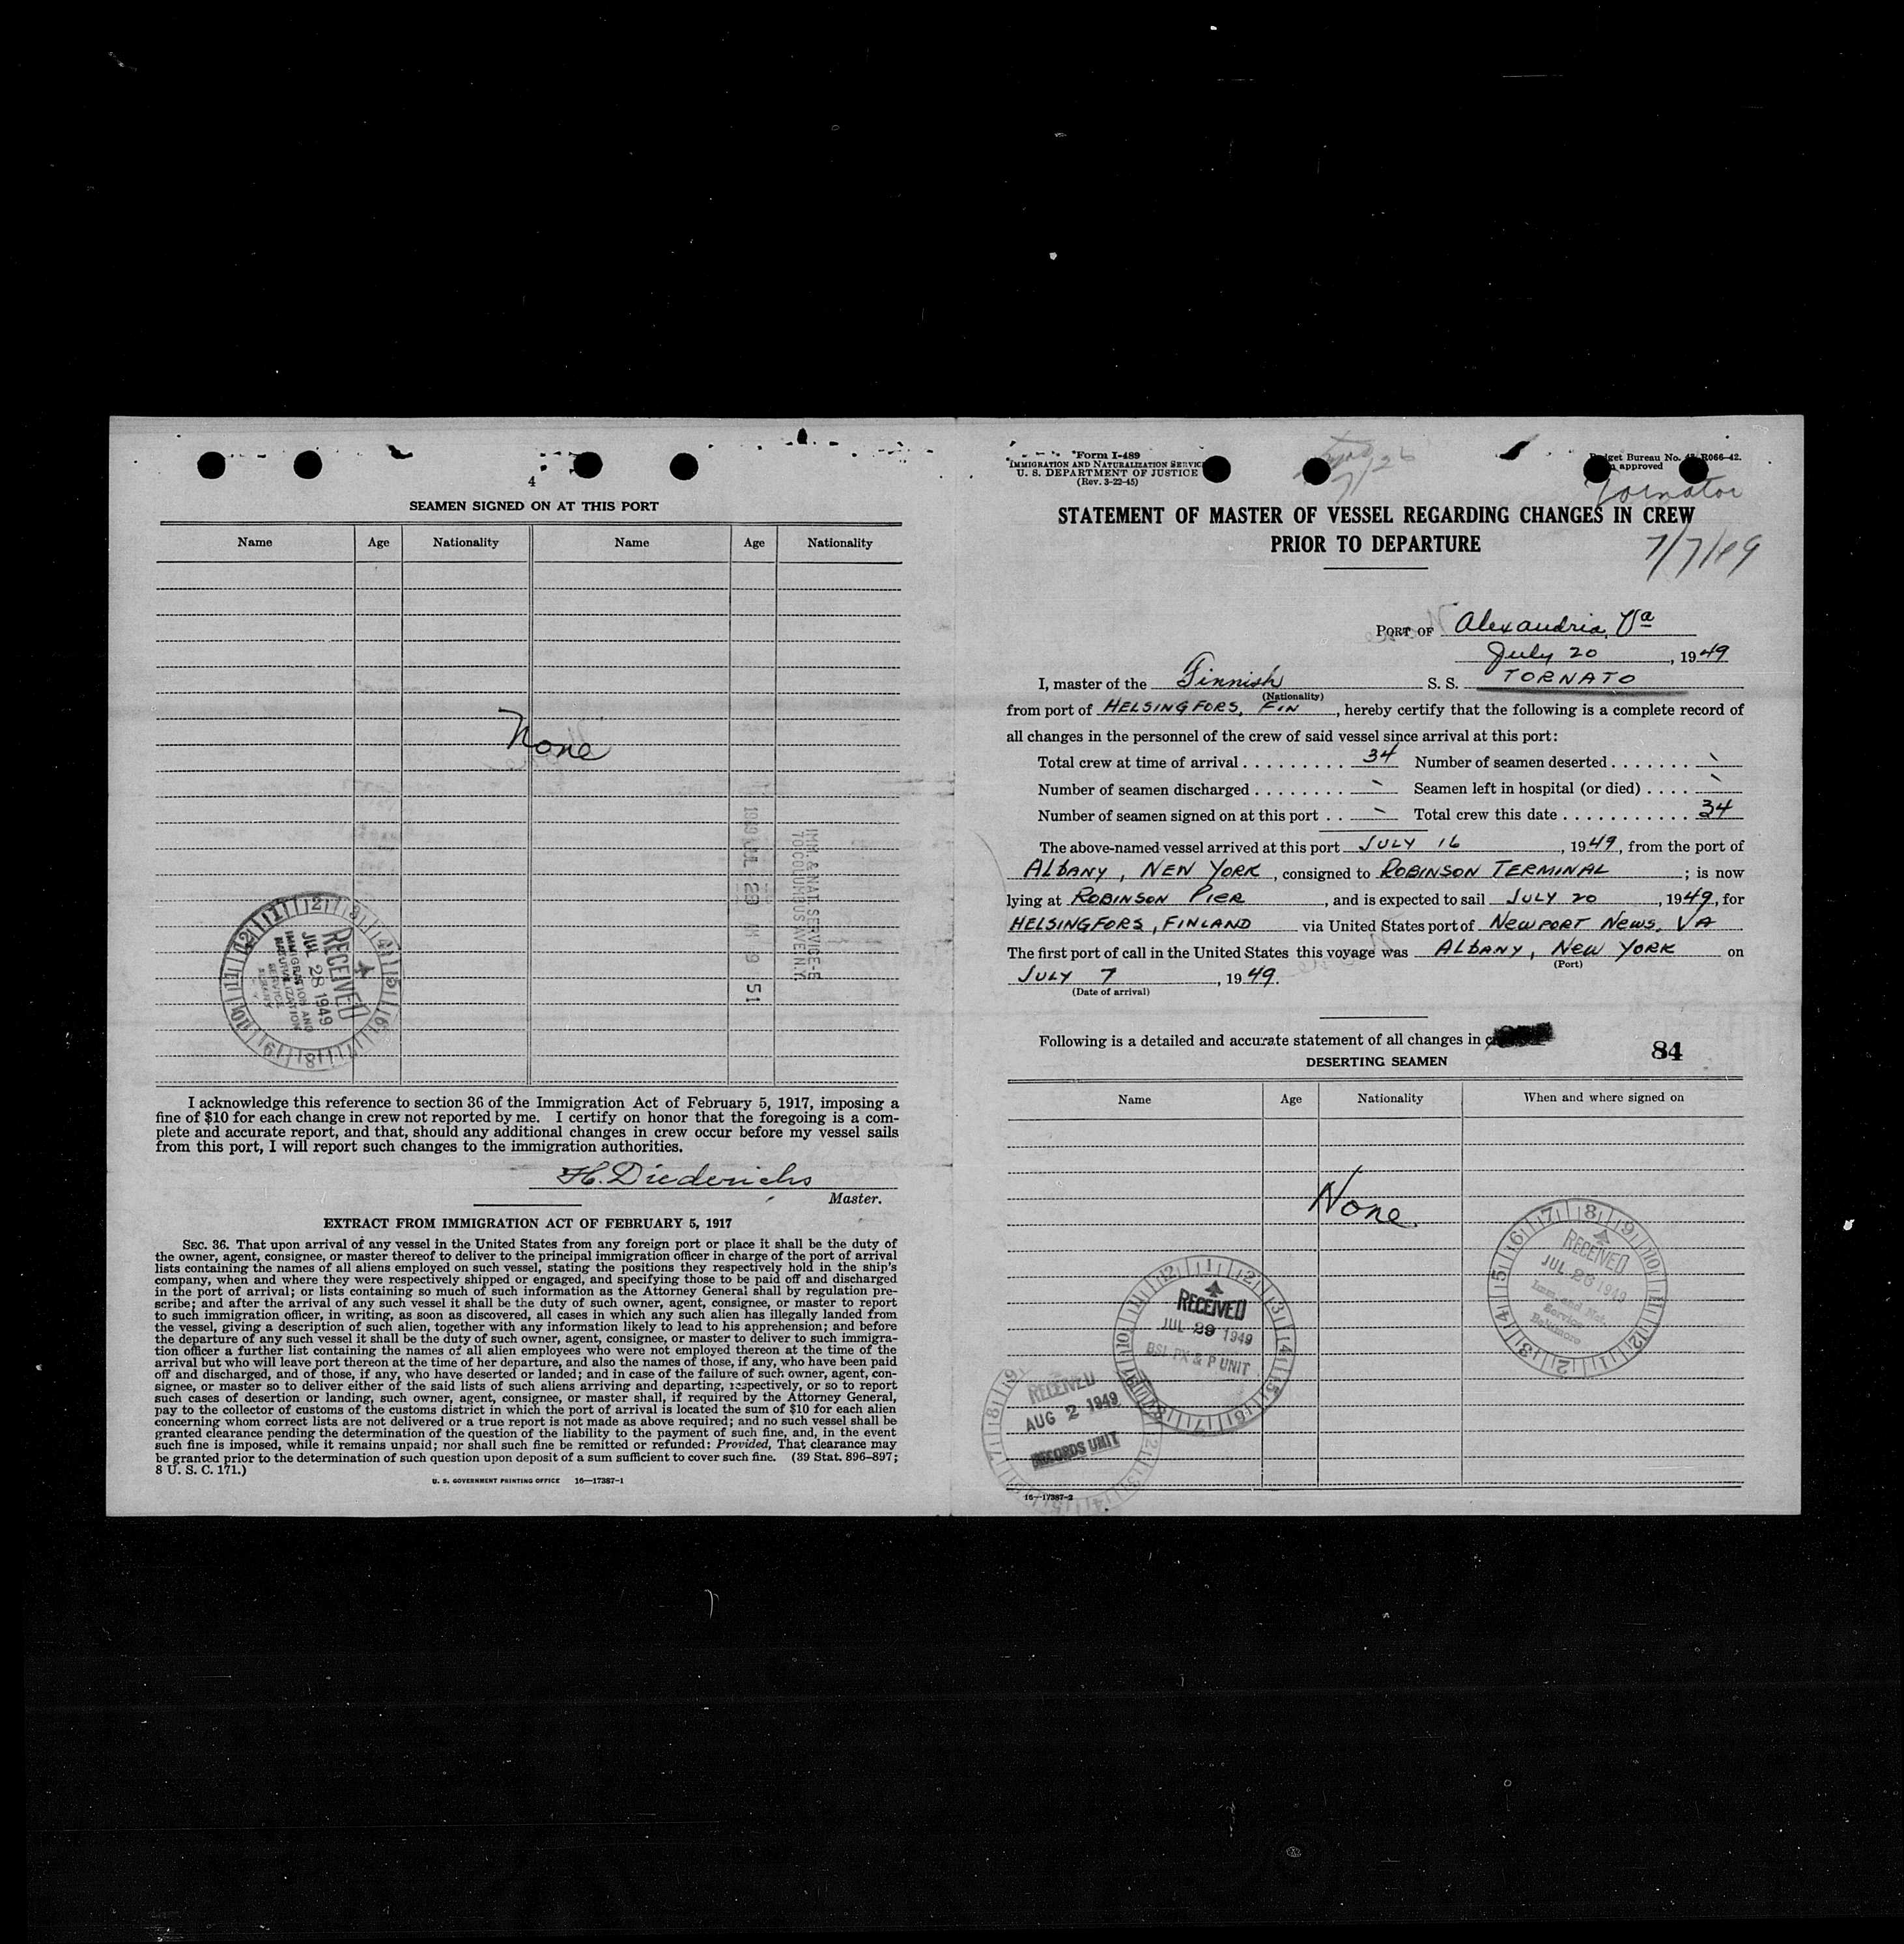 4
SEAMEN SIGNED ON AT THIS PORT
Name Age Nationality Name Age Nationality
None
1949 JUL 29 9 51
IMM. & NAT. SERVICE-E
70 COLUMBUS AVE. N.Y.
RECEIVED
JUL 28 1949
IMMIGRATION AND
NATURALIZATION
SERVICE
I acknowledge this reference to section 36 of the Immigration Act of February 5, 1917, imposing a
fine of $10 for each change in crew not reported by me. I certify on honor that the foregoing is a com-
plete and accurate report, and that, should any additional changes in crew occur before my vessel sails
from this port, I will report such changes to the immigration authorities.
H. Diederichs
Master.
EXTRACT FROM IMMIGRATION ACT OF FEBRUARY 5, 1917
SEC. 36. That upon arrival of any vessel in the United States from any foreign port or place it shall be the duty of
the owner, agent, consignee, or master thereof to deliver to the principal immigration officer in charge of the port of arrival
lists containing the names of all aliens employed on such vessel, stating the positions they respectively hold in the ship's
company, when and where they were respectively shipped or engaged, and specifying those to be paid off and discharged
in the port of arrival; or lists containing so much of such information as the Attorney General shall by regulation pre-
scribe; and after the arrival of any such vessel it shall be the duty of such owner, agent, consignee, or master to report
to such immigration officer, in writing, as soon as discovered, all cases in which any such alien has illegally landed from
the vessel, giving a description of such alien, together with any information likely to lead to his apprehension; and before
the departure of any such vessel it shall be the duty of such owner, agent, consignee, or master to deliver to such immigra-
tion officer a further list containing the names of all alien employees who were not employed thereon at the time of the
arrival but who will leave port thereon at the time of her departure, and also the names of those, if any, who have been paid
off and discharged, and of those, if any, who have deserted or landed; and in case of the failure of such owner, agent, con-
signee, or master so to deliver either of the said lists of such aliens arriving and departing, respectively, or so to report
such cases of desertion or landing, such owner, agent, consignee, or master shall, if required by the Attorney General,
pay to the collector of customs of the customs district in which the port of arrival is located the sum of $10 for each alien
concerning whom correct lists are not delivered or a true report is not made as above required; and no such vessel shall be
granted clearance pending the determination of the question of the liability to the payment of such fine, and, in the event
such fine is imposed, while it remains unpaid; nor shall such fine be remitted or refunded: Provided, That clearance may
be granted prior to the determination of such question upon deposit of a sum sufficient to cover such fine. (39 Stat. 896–897;
8 U. S. C. 171.)
U. S. GOVERNMENT PRINTING OFFICE 16—17387-1
Form I-489
IMMIGRATION AND NATURALIZATION SERVICE
U. S. DEPARTMENT OF JUSTICE
(Rev. 3-22-45)
7/26
Budget Bureau No. R066-42.
approved
Tornator
STATEMENT OF MASTER OF VESSEL REGARDING CHANGES IN CREW
PRIOR TO DEPARTURE
7/7/49
PORT OF Alexandria, Va
July 20, 1949
I, master of the Finnish S. S. TORNATO
(Nationality)
from port of HELSINGFORS, FIN, hereby certify that the following is a complete record of
all changes in the personnel of the crew of said vessel since arrival at this port:
Total crew at time of arrival . . . . . . . . . 34 Number of seamen deserted . . . . . . . \
Number of seamen discharged . . . . . . . . \ Seamen left in hospital (or died) . . . . \
Number of seamen signed on at this port . . \ Total crew this date . . . . . . . . . . . 34
The above-named vessel arrived at this port JULY 16, 1949, from the port of
ALBANY, NEW YORK, consigned to ROBINSON TERMINAL; is now
lying at ROBINSON PIER, and is expected to sail JULY 20, 1949, for
HELSINGFORS, FINLAND via United States port of NEWPORT NEWS, VA
The first port of call in the United States this voyage was ALBANY, NEW YORK on
(Port)
JULY 7, 1949.
(Date of arrival)
Following is a detailed and accurate statement of all changes in
84
DESERTING SEAMEN
Name Age Nationality When and where signed on
None
RECEIVED
JUL 26 1949
Imm. and Nat.
Service
Baltimore
RECEIVED
JUL 29 1949
BSI PX & P UNIT
RECEIVED
AUG 2 1949
RECORDS UNIT
16—17387-2